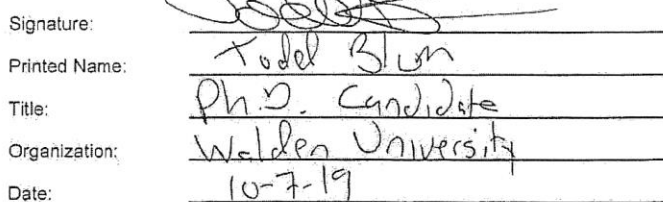 Signature:
Printed Name: Todd Blum
Title: Ph.D. Candidate
Organization: Walden University
Date: 10-7-19